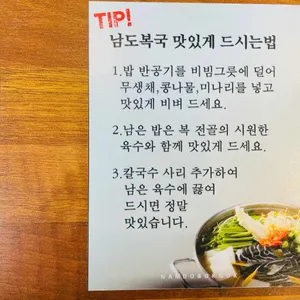 TIP!
남도복국 맛있게 드시는법
1.밥 반공기를 비빔그릇에 덜어
무생채,콩나물,미나리를 넣고
맛있게 비벼 드세요.
2.남은 밥은 복 전골의 시원한
육수와 함께 맛있게 드세요.
3.칼국수 사리 추가하여
남은 육수에 끓여
드시면 정말
맛있습니다.